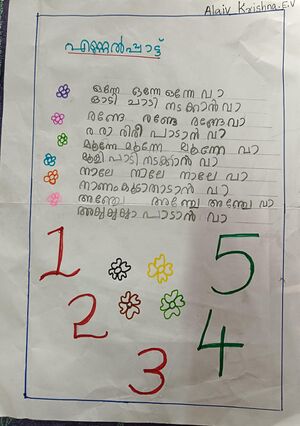 Alaiv Krishna.E.V
എണ്ണൽപ്പാട്ട്
ഒന്നേ ഒന്നേ ഒന്നേ വാ
ഓടി ചാടി നടക്കാൻ വാ
രണ്ടേ രണ്ടേ രണ്ടേ വാ
രാരാ രീരീ പാടാൻ വാ
മൂന്നേ മൂന്നേ മൂന്നേ വാ
മൂളി പാടി നടക്കാൻ വാ
നാലേ നാലേ നാലേ വാ
വാ
അഞ്ചേ അഞ്ചേ അഞ്ചേ വാ
പാടാൻ വാ
1
5
2
4
3